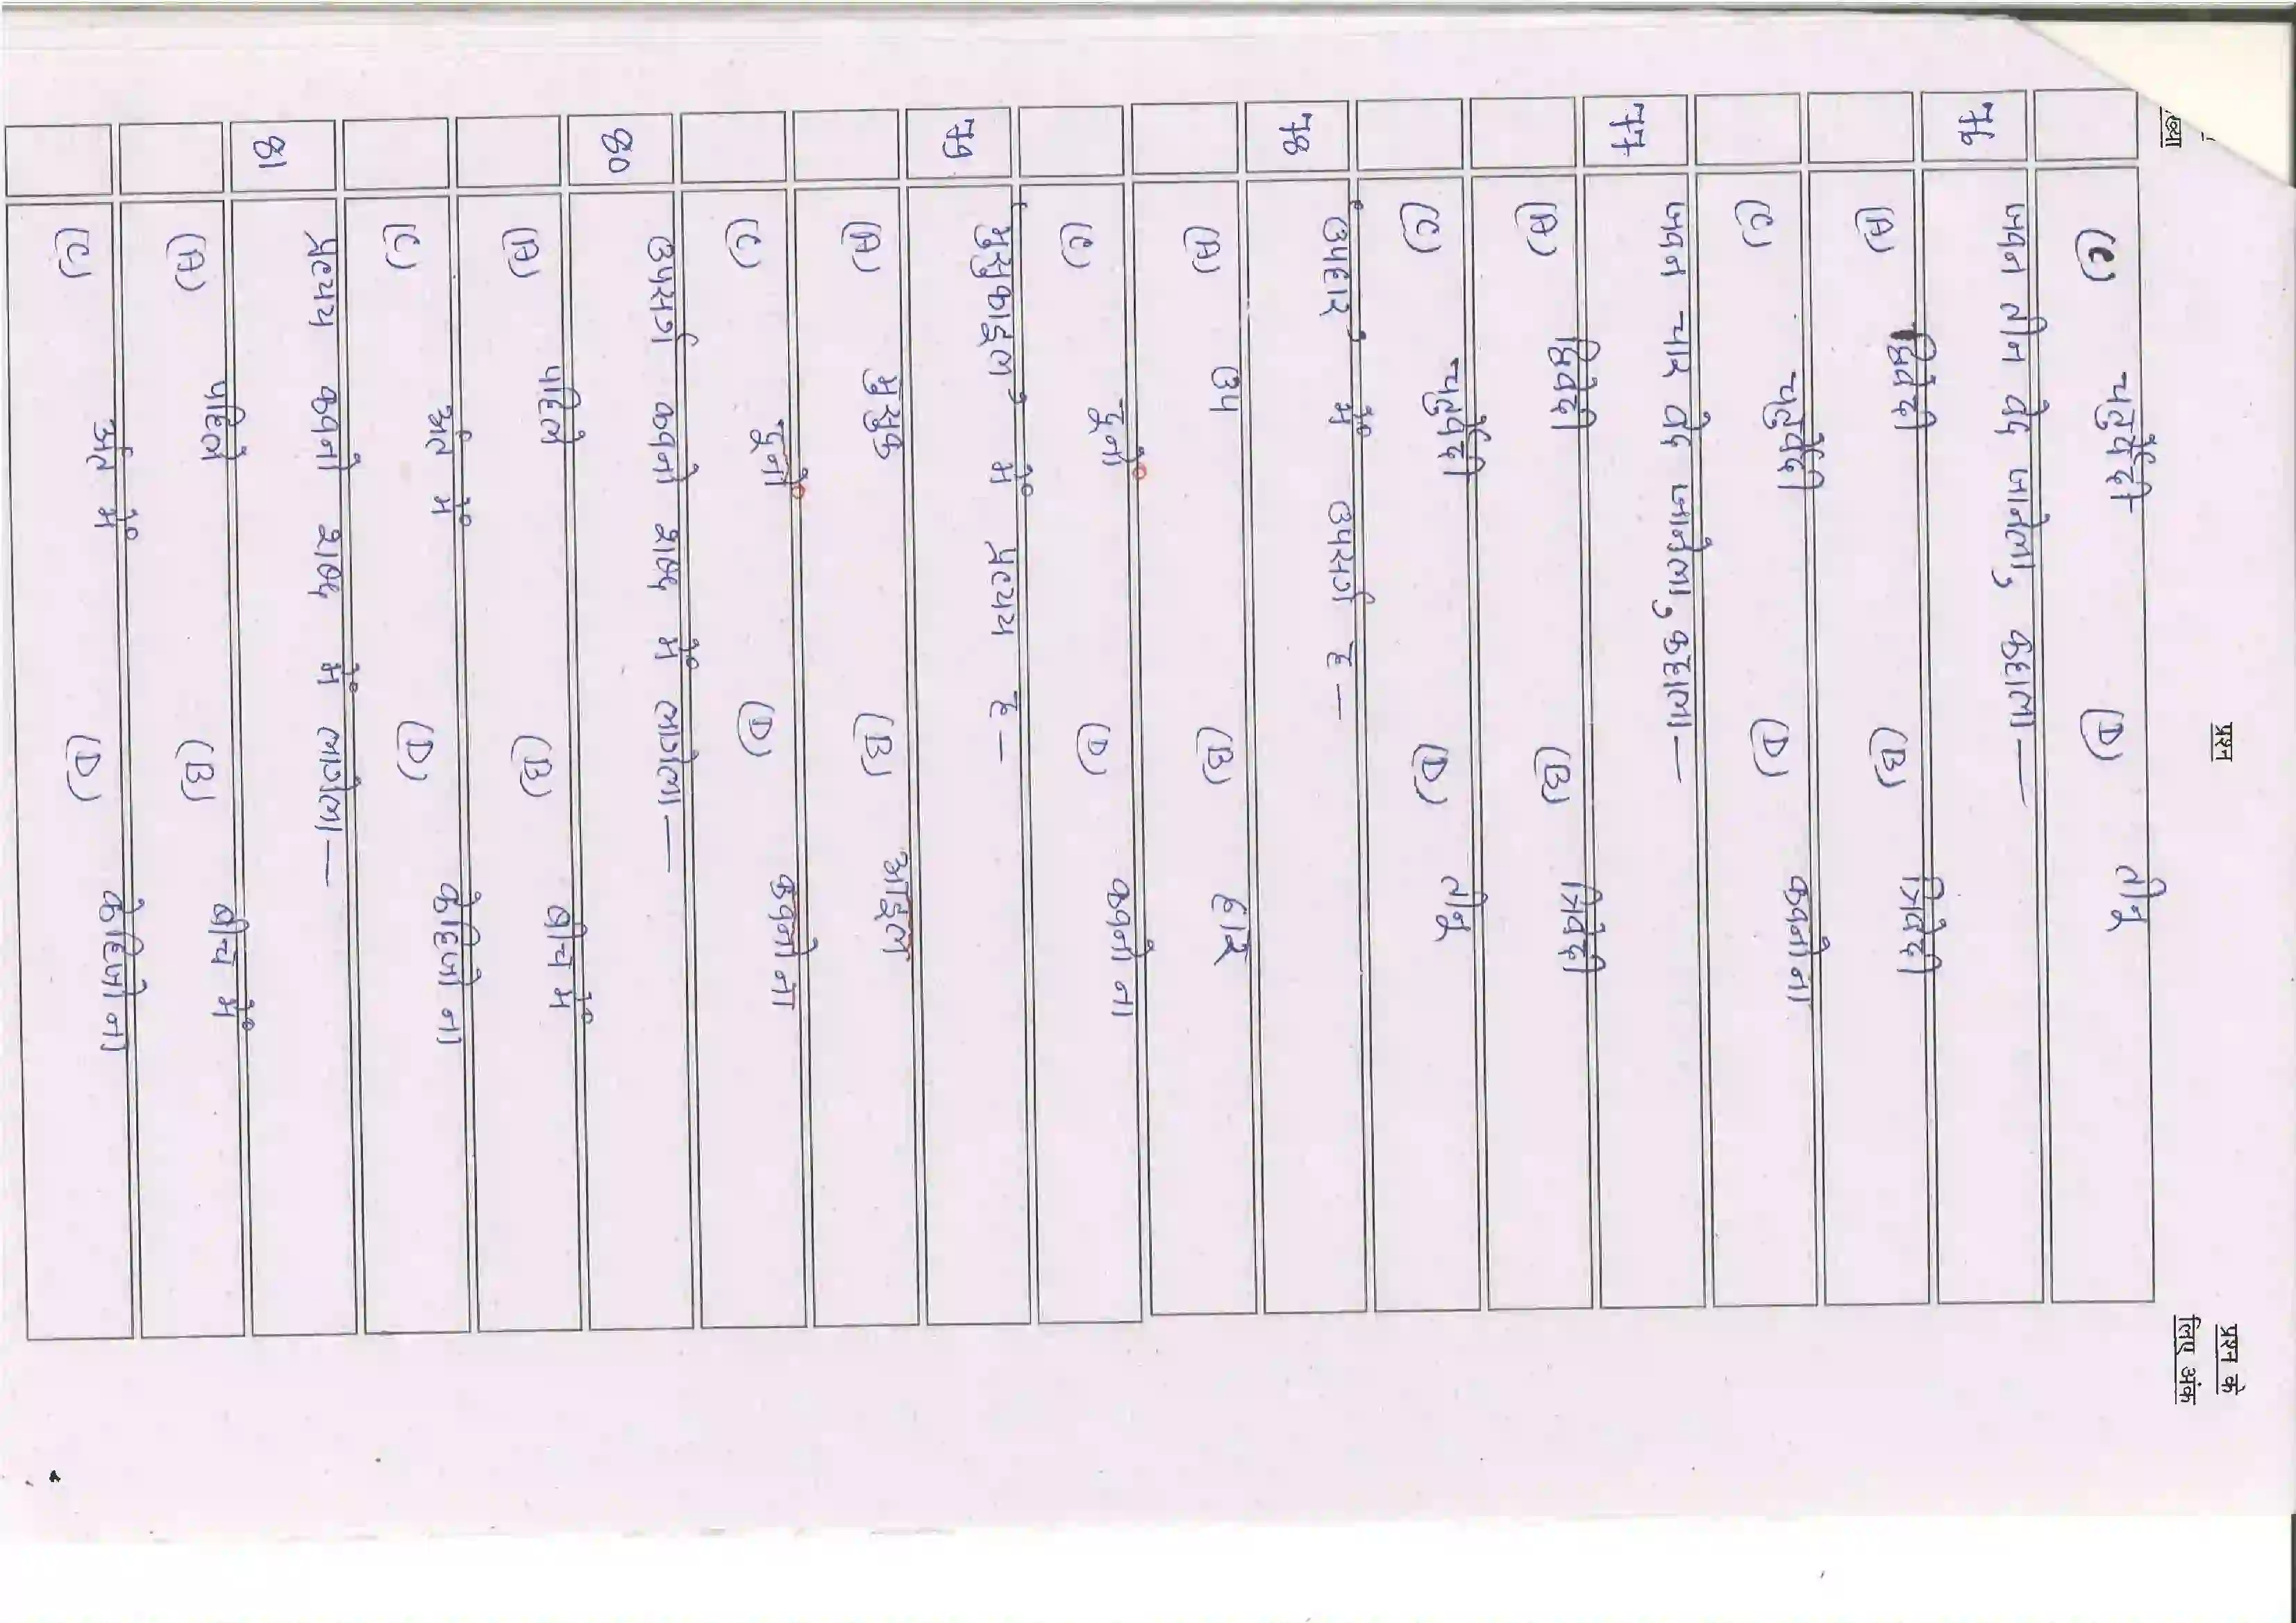 ख्या प्रश्न प्रश्न के
लिए अंक
(C) चतुर्वेदी (D) तीनू
76 जवन तीन वेद जानेला, कहाला —
(A) द्विवेदी (B) त्रिवेदी
(C) चतुर्वेदी (D) कवनो ना
77 जवन चार वेद जानेला, कहाला —
(A) द्विवेदी (B) त्रिवेदी
(C) चतुर्वेदी (D) तीनू
78 'उपहार' में उपसर्ग ह —
(A) उप (B) हार
(C) दूनों (D) कवनो ना
79 'मुसुकाइल' में प्रत्यय ह —
(A) मुसुक (B) आइल
(C) दूनों (D) कवनो ना
80 उपसर्ग कवनो शब्द में लागेला —
(A) पहिले (B) बीच में
(C) अंत में (D) केहिजो ना
81 प्रत्यय कवनो शब्द में लागेला —
(A) पहिले (B) बीच में
(C) अंत में (D) केहिजो ना